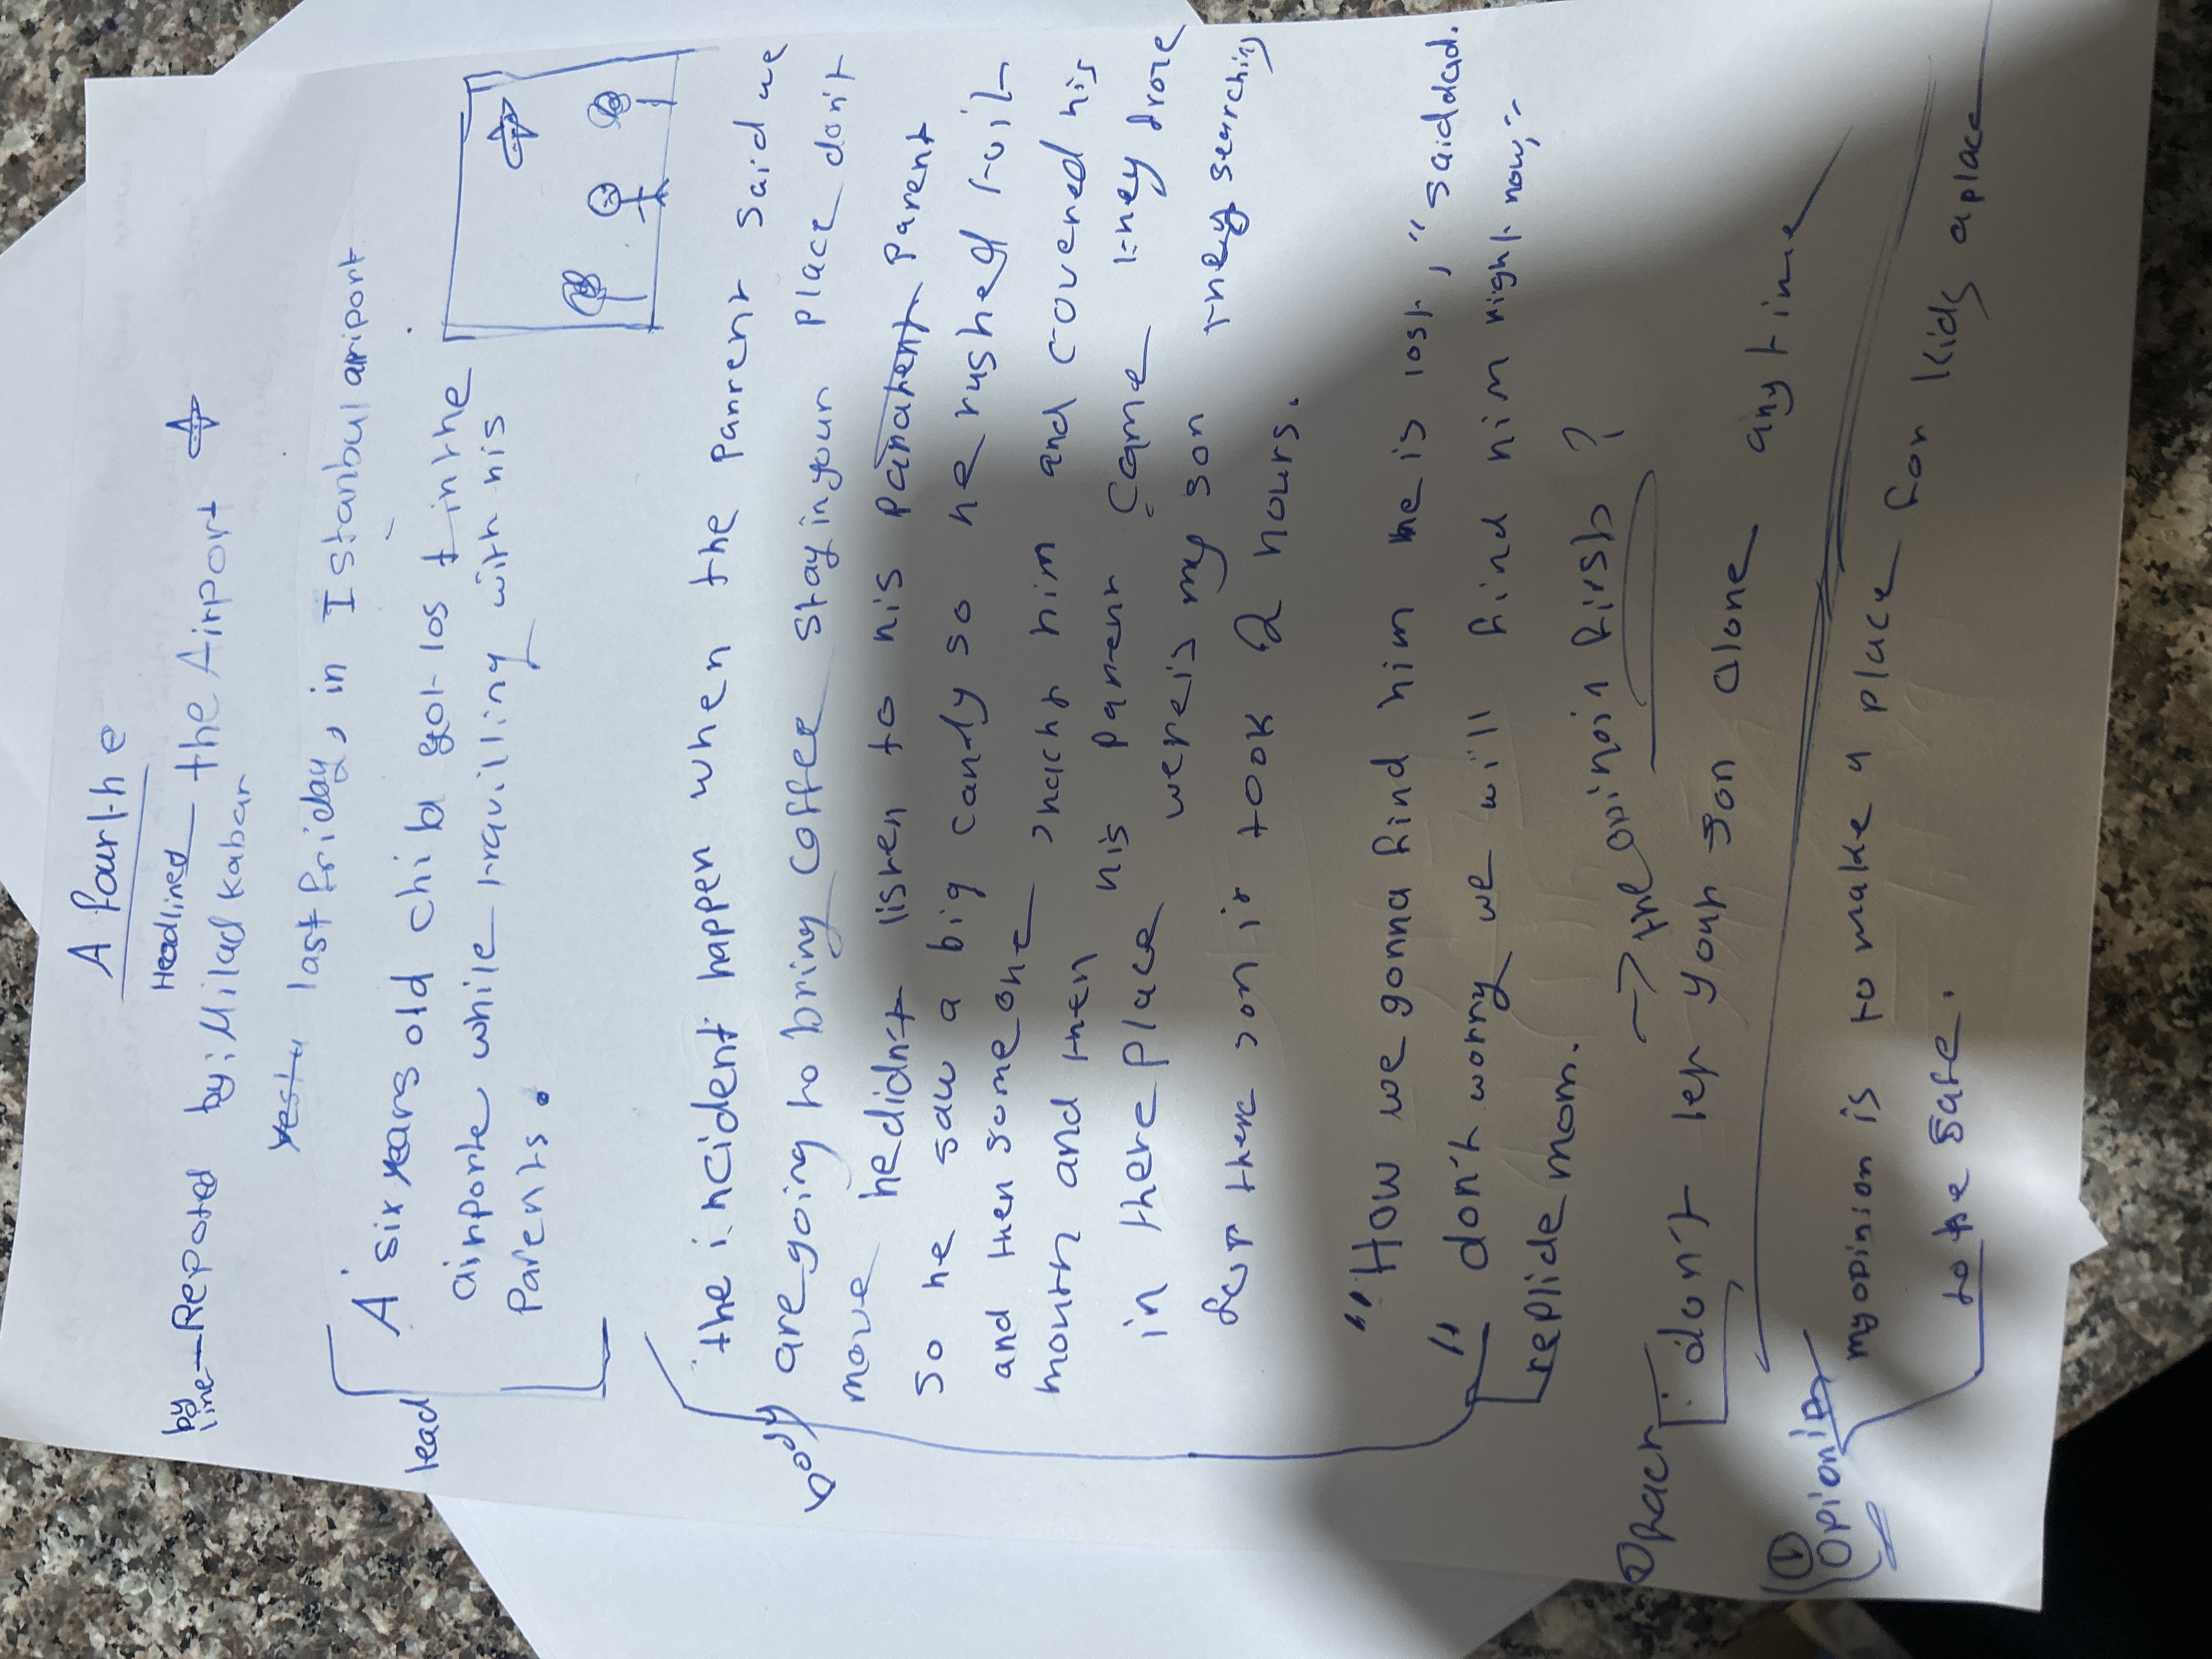 A Fourthe
Headlined the Airport
by line Reported by: Milad Kabar
last friday, in Istanbul ariport
lead
A six years old child got lost in the
airporte while travilling with his
Parents.
body
the incident happen when the Parrent said we
are going to bring coffee stay in your place don't
move he didn't listen to his Parent
so he saw a big candy so he rushed foit
and then some one snacht him and covered his
mouth and then his parrent came they drove
in there place were is my son they searching
for there son it took 2 hours.
"How we gonna find him he is lost," said dad.
"don't worry we will find him right now,"
replide mom.
→ the opinoin first?
② fact
don't let your son alone any time
① Opionion
my opinion is to make a place for kids a place
to be safe.